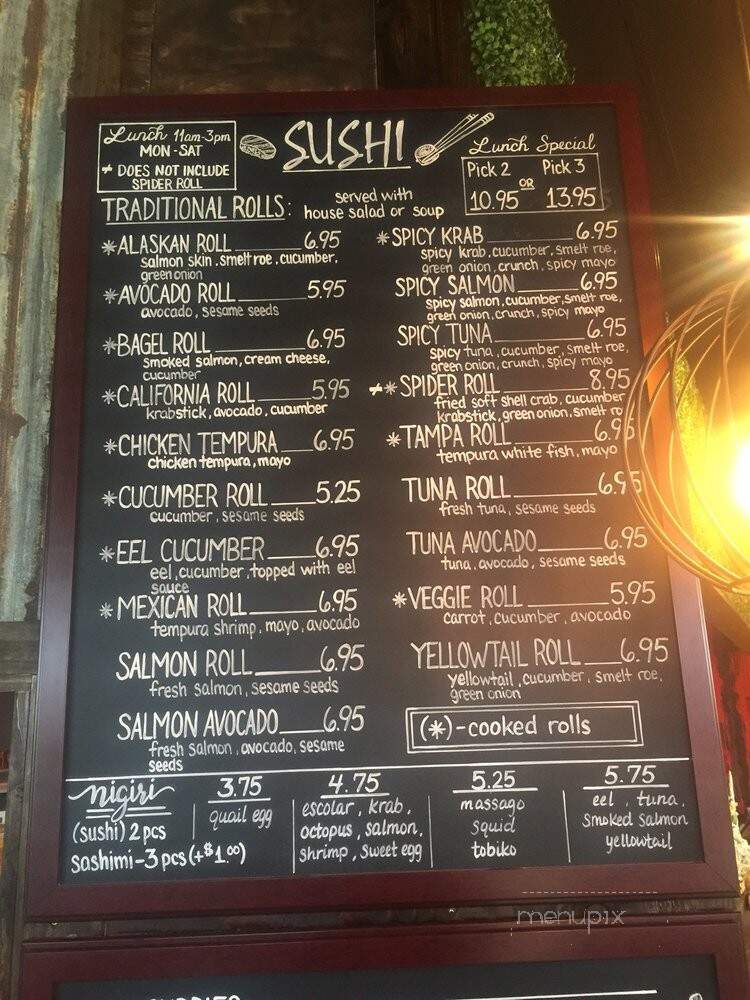 Lunch 11am-3pm
MON-SAT
≠ DOES NOT INCLUDE
SPIDER ROLL
SUSHI
Lunch Special
Pick 2 OR Pick 3
10.95 13.95
TRADITIONAL ROLLS:
served with
house salad or soup
*ALASKAN ROLL 6.95
salmon skin, smelt roe, cucumber,
green onion
*AVOCADO ROLL 5.95
avocado, sesame seeds
*BAGEL ROLL 6.95
smoked salmon, cream cheese,
cucumber
*CALIFORNIA ROLL 5.95
krabstick, avocado, cucumber
*CHICKEN TEMPURA 6.95
chicken tempura, mayo
*CUCUMBER ROLL 5.25
cucumber, sesame seeds
*EEL CUCUMBER 6.95
eel, cucumber, topped with eel
sauce
*MEXICAN ROLL 6.95
tempura shrimp, mayo, avocado
SALMON ROLL 6.95
fresh salmon, sesame seeds
SALMON AVOCADO 6.95
fresh salmon, avocado, sesame
seeds
*SPICY KRAB 6.95
spicy krab, cucumber, smelt roe,
green onion, crunch, spicy mayo
SPICY SALMON 6.95
spicy salmon, cucumber, smelt roe,
green onion, crunch, spicy mayo
SPICY TUNA 6.95
spicy tuna, cucumber, smelt roe,
green onion, crunch, spicy mayo
≠*SPIDER ROLL 8.95
fried soft shell crab, cucumber
krabstick, green onion, smelt ro
*TAMPA ROLL 6.95
tempura white fish, mayo
TUNA ROLL 6.95
fresh tuna, sesame seeds
TUNA AVOCADO 6.95
tuna, avocado, sesame seeds
*VEGGIE ROLL 5.95
carrot, cucumber, avocado
YELLOWTAIL ROLL 6.95
yellowtail, cucumber, smelt roe,
green onion
(*)-cooked rolls
nigiri
(sushi) 2 pcs
sashimi-3 pcs (+$1.00)
3.75
quail egg
4.75
escolar, krab,
octopus, salmon,
shrimp, sweet egg
5.25
massago
squid
tobiko
5.75
eel, tuna,
smoked salmon
yellowtail
menupix